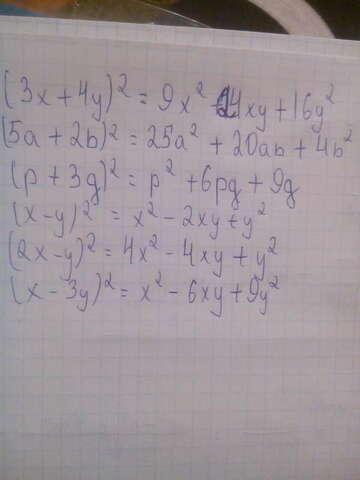 (3x + 4y)² = 9x² + 24xy + 16y²
(5a + 2b)² = 25a² + 20ab + 4b²
(p + 3g)² = p² + 6pg + 9g
(x - y)² = x² - 2xy + y²
(2x - y)² = 4x² - 4xy + y²
(x - 3y)² = x² - 6xy + 9y²